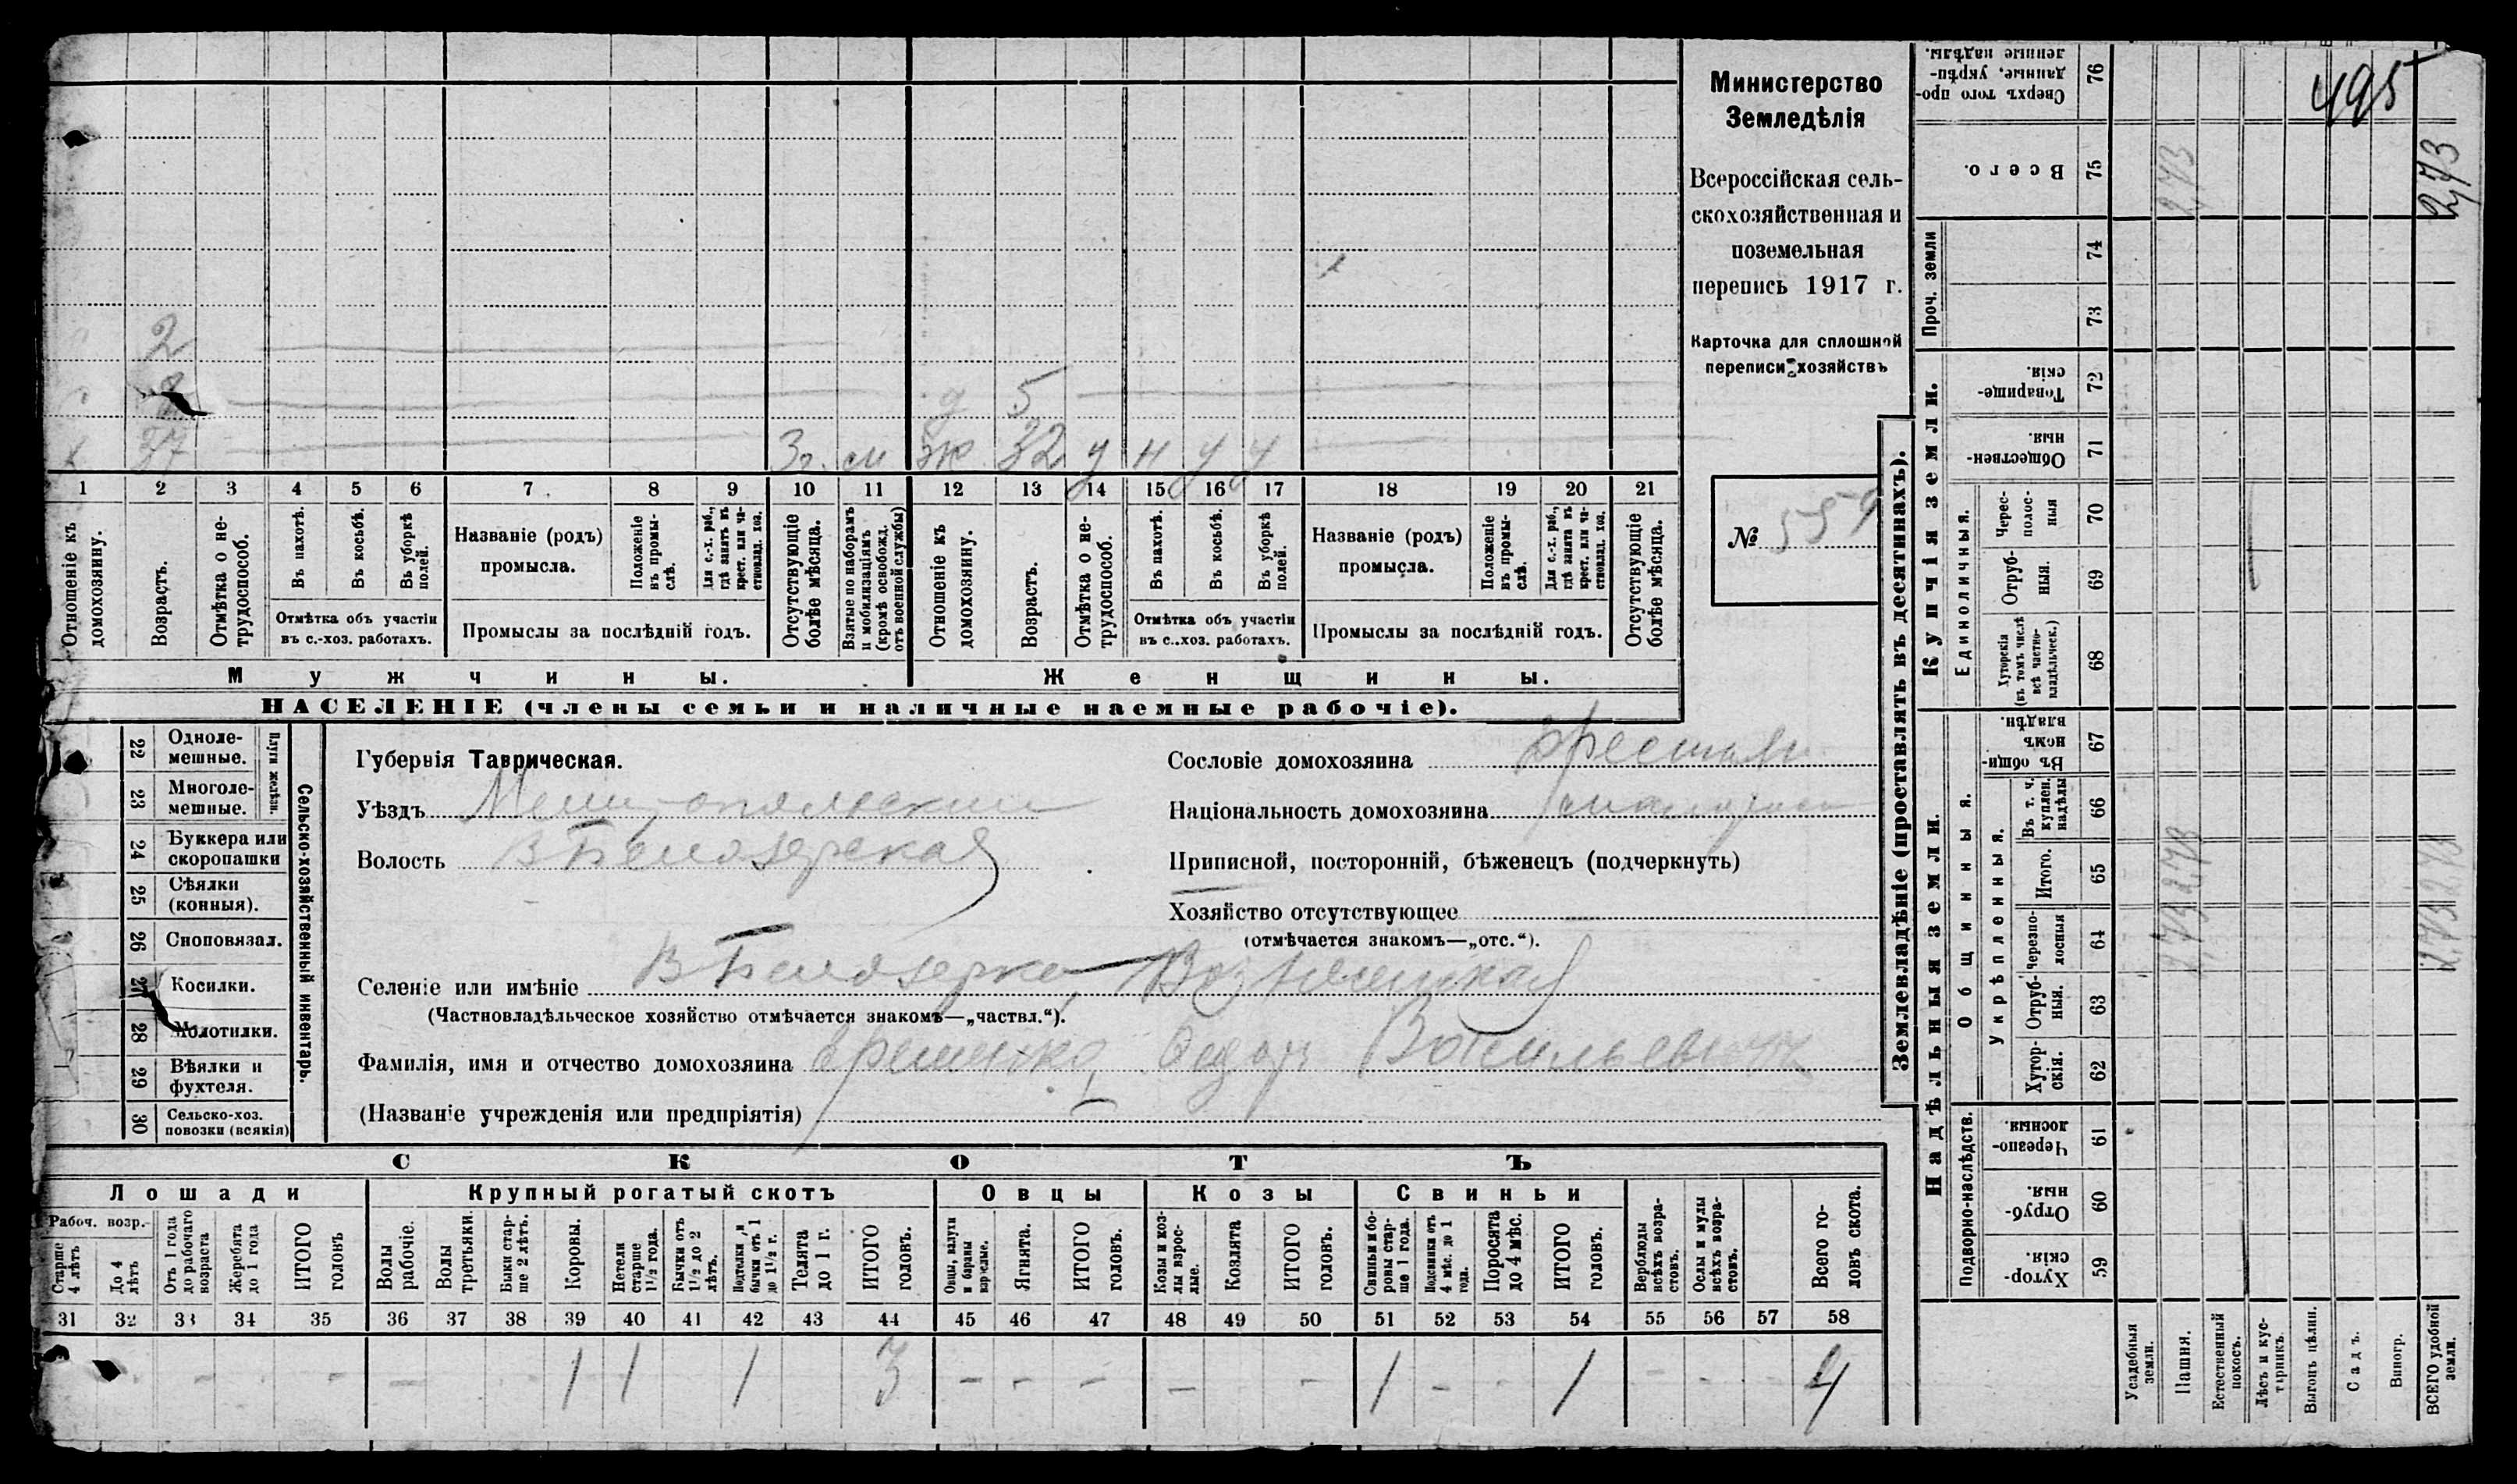 495
Министерство
Земледѣлія
Всероссійская сель-
скохозяйственная и
поземельная
перепись 1917 г.
Карточка для сплошной
переписи хозяйствъ
№ 559
2
д 5
37 3 г. см ж 32 у н у у
1 2 3 4 5 6 7 8 9 10 11 12 13 14 15 16 17 18 19 20 21
Отношеніе къ домохозяину.
Возрастъ.
Отмѣтка о не-трудоспособ.
Въ пахотѣ.
Въ косьбѣ.
Въ уборкѣ полей.
Отмѣтка объ участіи
въ с.-хоз. работахъ.
Названіе (родъ)
промысла.
Положеніе въ промы-слѣ.
Для с.-х. раб., гдѣ занятъ въ крест. или ча-стновлад. хоз.
Промыслы за послѣдній годъ.
Отсутствующіе болѣе мѣсяца.
Взятые по наборамъ и мобилизаціямъ (кромѣ освобожд. отъ военной службы)
Отношеніе къ домохозяину.
Возрастъ.
Отмѣтка о не-трудоспособ.
Въ пахотѣ.
Въ косьбѣ.
Въ уборкѣ полей.
Отмѣтка объ участіи
въ с..хоз. работахъ.
Названіе (родъ)
промысла.
Положеніе въ промы-слѣ.
Для с.-х. раб., гдѣ занята въ крест. или ча-стновлад. хоз.
Промыслы за послѣдній годъ.
Отсутствующіе болѣе мѣсяца.
Мужчины. Женщины.
НАСЕЛЕНІЕ (члены семьи и наличные наемные рабочіе).
22 Одноле-мешные.
23 Многоле-мешные.
Плуги желѣзн.
24 Буккера или скоропашки
25 Сѣялки (конныя).
26 Сноповязал.
27 Косилки.
28 Молотилки.
29 Вѣялки и фухтеля.
30 Сельско-хоз. повозки (всякія)
Сельско-хозяйственный инвентарь.
Губернія Таврическая.
Уѣздъ Мелитопольский
Волость В Белозерская
Селеніе или имѣніе В Белозерка, Вознесенская
(Частновладѣльческое хозяйство отмѣчается знакомъ—„частвл.“).
Фамилія, имя и отчество домохозяина Еременко, Федор Васильевич
(Названіе учрежденія или предпріятія)
Сословіе домохозяина крестьян
Національность домохозяина
Приписной, посторонній, бѣженецъ (подчеркнуть)
Хозяйство отсутствующее
(отмѣчается знакомъ—„отс.“).
СКОТЪ
Лошади Крупный рогатый скотъ Овцы Козы Свиньи
Рабоч. возр.
Старше 4 лѣтъ
До 4 лѣтъ
Отъ 1 года до рабочаго возраста
Жеребята до 1 года
ИТОГО головъ
Волы рабочіе.
Волы третьяки.
Быки стар-ше 2 лѣтъ.
Коровы.
Нетели старше 1½ года.
Бычки отъ 1½ до 2 лѣтъ.
Подтелки и бычки отъ 1 до 1½ г.
Телята до 1 г.
ИТОГО головъ.
Овцы, валухи и бараны взрослые.
Ягнята.
ИТОГО головъ.
Козы и коз-лы взрос-лые.
Козлята
ИТОГО головъ.
Свиньи и бо-ровы стар-ше 1 года.
Подсвинки отъ 4 мѣс. до 1 года.
Поросята до 4 мѣс.
ИТОГО головъ.
Верблюды всѣхъ возра-стовъ.
Ослы и мулы всѣхъ возра-стовъ.
Всего го-ловъ скота.
31 32 33 34 35 36 37 38 39 40 41 42 43 44 45 46 47 48 49 50 51 52 53 54 55 56 57 58
- - - - 1 1 1 3 - - - - - 1 - - 1 - - - 4
Землевладѣніе (проставлять въ десятинахъ).
Купчія земли.
Надѣльныя земли.
Сверхъ того про-данные, укрѣп-ленные надѣлы. 76
Всего. 75 2,73 2,73
Проч. земли 74
73
Товарище-скія. 72
Обществен-ныя. 71
Единоличныя.
Черес-полос-ныя 70
Отруб-ныя. 69
Хуторскія (въ томъ числѣ всѣ частно-владѣльческ.) 68
Общинныя.
Въ общи-номъ владѣн. 67
Укрѣпленныя.
Въ т. ч. куплен. надѣлы 66
Итого. 65 2,73 2,73
Черезпо-лосныя 64 2,73 2,73
Отруб-ныя. 63
Хутор-скія. 62
Подворно-наслѣдств.
Черезпо-лосныя 61
Отруб-ныя. 60
Хутор-скія. 59
Усадебныя земли.
Пашня.
Естественный покосъ.
Лѣсъ и кус-тарникъ.
Выгонъ цѣлин.
Садъ.
Виногр.
ВСЕГО удобной земли.